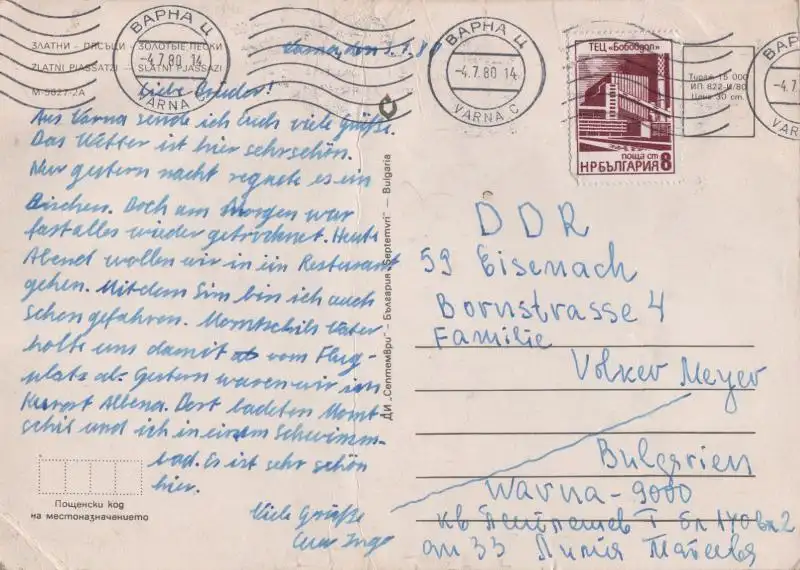 ЗЛАТНИ - ПЯСЪЦИ - ЗОЛОТЫЕ ПЕСКИ
ZLATNI PIASSATZI - SLATNI PJASSAZI
M-5827-2A
Varna, den 3.7.80
Liebe Brüder!
Aus Varna sende ich Euch viele Grüße.
Das Wetter ist hier sehr schön.
Nur gestern nacht regnete es ein
Bischen. Doch am Morgen war
fast alles wieder getrocknet. Heute
Abend wollen wir in ein Restaurant
gehen. Mit dem Sim bin ich auch
schon gefahren. Momtschils Vater
holte uns damit vom Flug-
platz ab. Gestern waren wir im
Kurort Albena. Dort badeten Momt-
schil und ich in einem Schwimm-
bad. Es ist sehr schön
hier.
Viele Grüße
Euer Ingo
Пощенски код
на местоназначението
ДИ „Септември" — България „Septemvri" — Bulgaria
ВАРНА Ц
-4.7.80 14
VARNA C
ВАРНА Ц
-4.7.80 14
VARNA C
ТЕЦ «Бобовдол»
поща ст
НР БЪЛГАРИЯ 8
Тираж 15 000
ИП 822-II/80
Цена 30 ст.
ВАРН
-4.7
VAR
DDR
59 Eisenach
Bornstrasse 4
Familie
Volker Meyer
Bulgarien
Warna - 9000
кв бл 140 вх 2
ап 33 Лилия